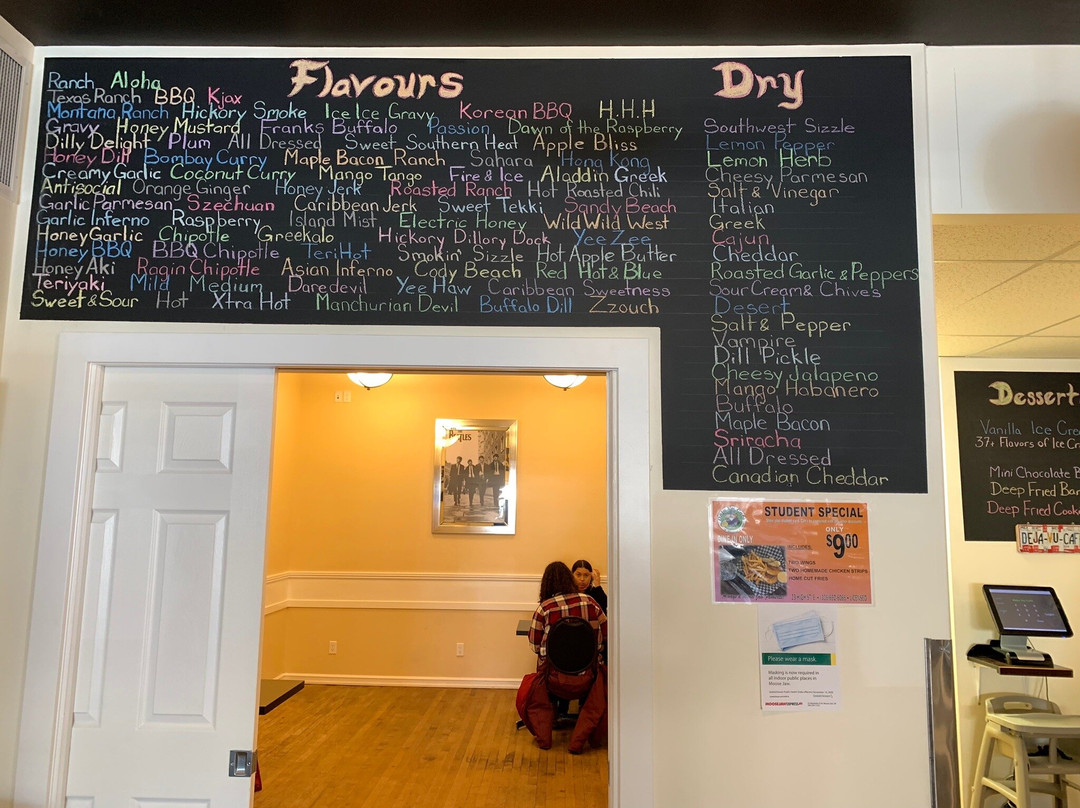 Flavours
Ranch Aloha
Texas Ranch BBQ Kjax
Montana Ranch Hickory Smoke Ice Ice Gravy Korean BBQ H.H.H
Gravy Honey Mustard Franks Buffalo Passion Dawn of the Raspberry
Dilly Delight Plum All Dressed Sweet Southern Heat Apple Bliss
Honey Dill Bombay Curry Maple Bacon Ranch Sahara Hong Kong
Creamy Garlic Coconut Curry Mango Tango Fire & Ice Aladdin Greek
Antisocial Orange Ginger Honey Jerk Roasted Ranch Hot Roasted Chili
Garlic Parmesan Szechuan Caribbean Jerk Sweet Tekki Sandy Beach
Garlic Inferno Raspberry Island Mist Electric Honey Wild Wild West
Honey Garlic Chipotle Greekalo Hickory Dillory Dock Yee Zee
Honey BBQ BBQ Chipotle TeriHot Smokin' Sizzle Hot Apple Butter
Honey Aki Ragin Chipotle Asian Inferno Cody Beach Red Hot & Blue
Teriyaki Mild Medium Daredevil Yee Haw Caribbean Sweetness
Sweet & Sour Hot Xtra Hot Manchurian Devil Buffalo Dill Zzouch
Dry
Southwest Sizzle
Lemon Pepper
Lemon Herb
Cheesy Parmesan
Salt & Vinegar
Italian
Greek
Cajun
Cheddar
Roasted Garlic & Peppers
Sour Cream & Chives
Desert
Salt & Pepper
Vampire
Dill Pickle
Cheesy Jalapeno
Mango Habanero
Buffalo
Maple Bacon
Sriracha
All Dressed
Canadian Cheddar
Dessert
Vanilla Ice Cre
37+ Flavors of Ice Cr
Mini Chocolate B
Deep Fried Bar
Deep Fried Cook
DEJA-VU-CAF
STUDENT SPECIAL
ONLY
$9.00
DINE IN ONLY
INCLUDES:
TWO WINGS
TWO HOMEMADE CHICKEN STRIPS
HOME CUT FRIES
Please wear a mask
Masking is now required in
all indoor public places in
Moose Jaw.